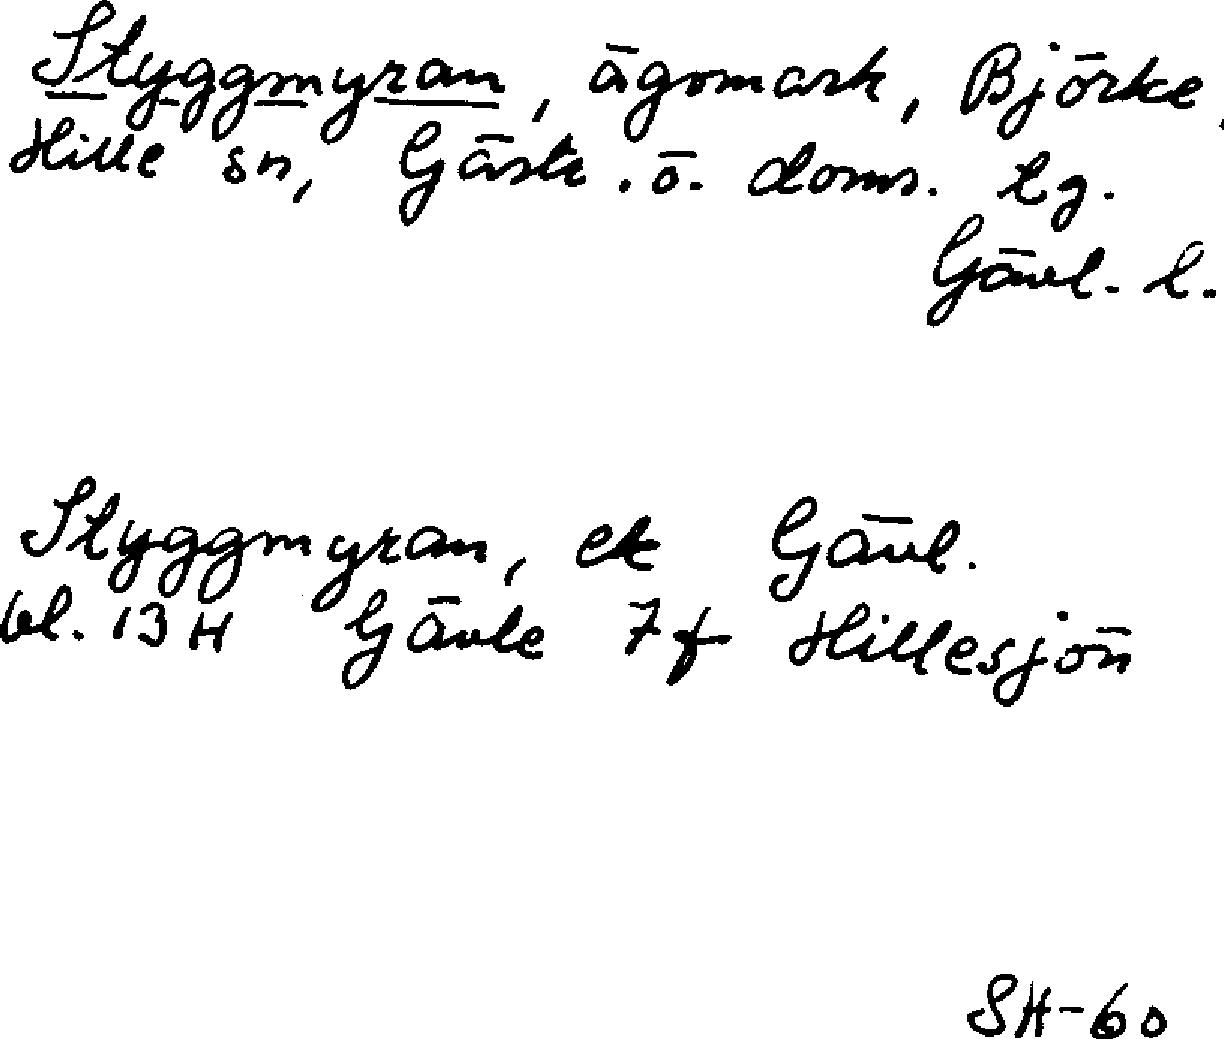 Styggmyran, ägomark, Björke,
Hille sn, Gästr. ö. doms. lg.
Gävl. l.
Styggmyran, ek Gävl.
bl. 13 H Gävle 7f Hillesjön
SH-60